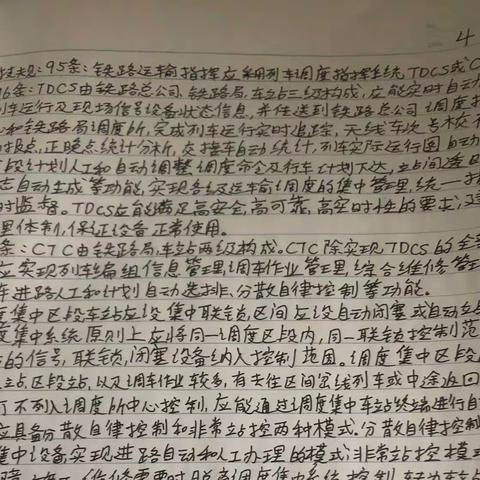 4
技规:95条:铁路运输指挥应采用列车调度指挥系统TDCS或C
96条:TDCS由铁路总公司、铁路局、车站三级构成,应能实时自动
列车运行及现场信号设备状态信息,并传送到铁路总公司调度指
心和铁路局调度所,完成列车运行实时追踪,无线车次号校
报点,正晚点统计分析,交接车自动统计,列车实际运行图自动
段计划人工和自动调整,调度命令及行车计划下达,站间透明
志自动生成等功能,实现各级运输调度的集中管理,统一指
时监督。TDCS应能满足高安全,高可靠,高实时性的要求;
里体制,保证设备正常使用。
条:CTC由铁路局,车站两级构成。CTC除实现TDCS的全
应实现列车编组信息管理,调车作业管理,综合维修管
车进路人工和计划自动选排、分散自律控制等功能。
度集中区段车站应设集中联锁,区间应设自动闭塞或自动站
度集中系统原则上应将同一调度区段内,同一联锁控制范
的信号,联锁,闭塞设备纳入控制范围。调度集中区段
站,区段站,以及调车作业较多,有去往区间岔线列车或中途返回
可不列入调度所中心控制,应能通过调度集中车站终端进行自
应具备分散自律控制和非常站控两种模式。分散自律控制
集中设备实现进路自动和人工办理的模式;非常站控模
障、施工、维修需要时脱离调度集中系统控制,转为车站